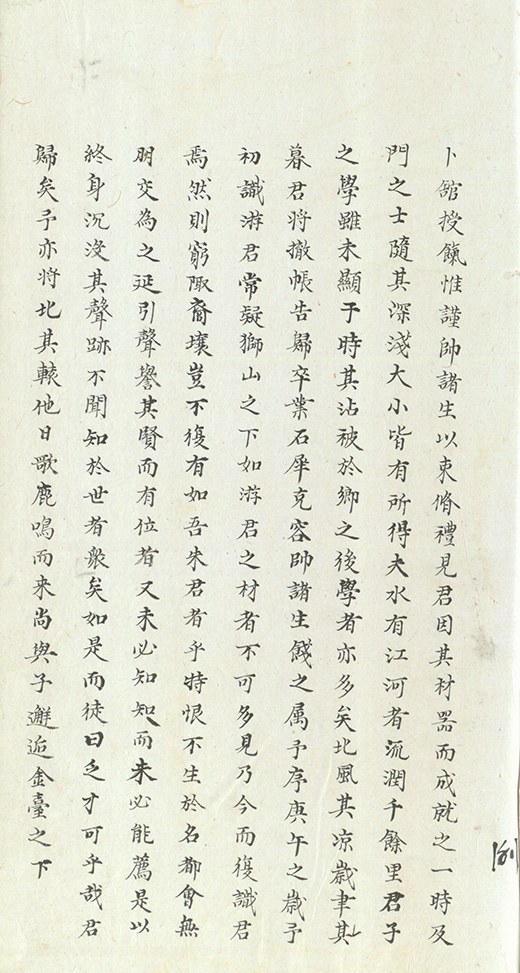 卜館授餼惟謹帥諸生以束脩禮見君因其材器而成就之一時及
門之士隨其深淺大小皆有所得夫水有江河者流潤千餘里君子
之學雖未顯于時其沾被於鄉之後學者亦多矣北風其凉歲聿其
暮君将撤帳告歸卒業石犀克容帥諸生餞之属予序庚午之歲予
初識游君常疑獅山之下如游君之材者不可多見乃今而復識君
焉然則窮陬裔壤豈不復有如吾朱君者乎特恨不生於名都會無
朋交為之延引聲譽其賢而有位者又未必知知而未必能薦是以
終身沉没其聲跡不聞知於世者衆矣如是而徒曰乏才可乎哉君
歸矣予亦将北其轅他日歌鹿鳴而来尚與子邂逅金臺之下